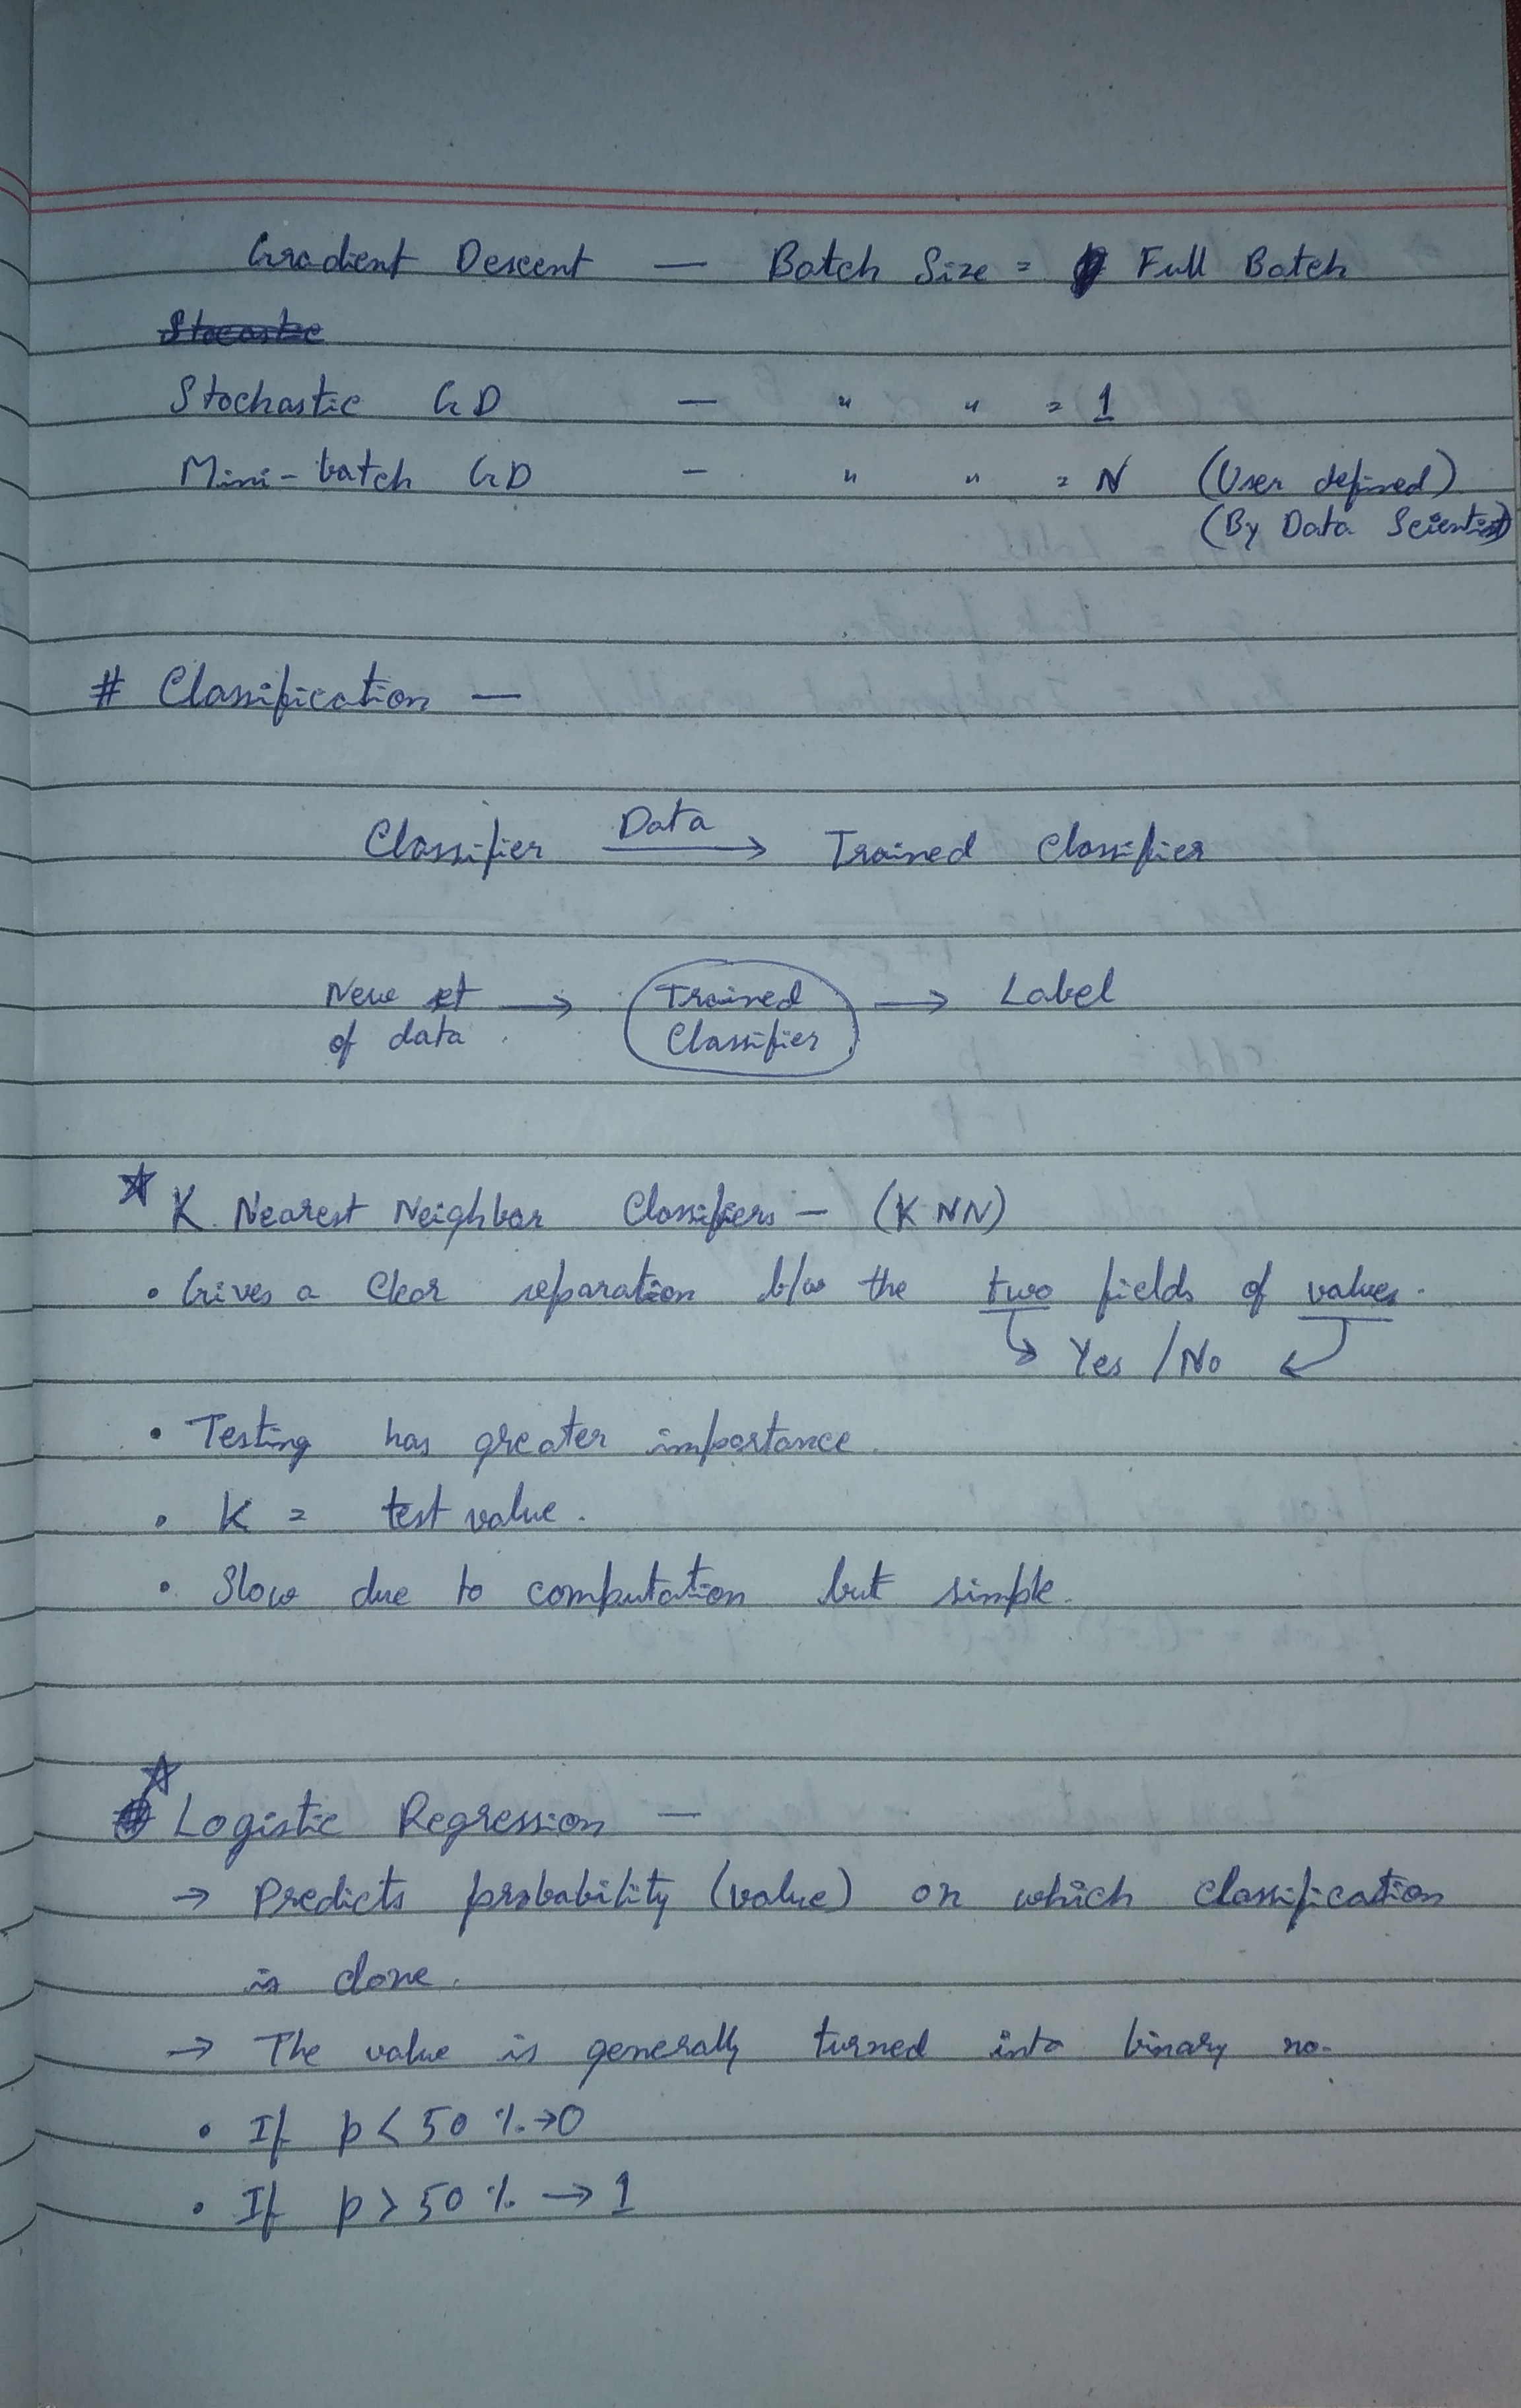 Gradient Descent — Batch Size = Full Batch
Stocastic
Stochastic GD — " " = 1
Mini-batch GD — " " = N (User defined)
(By Data Scientist)
# Classification —
Classifier Data → Trained Classifier
New set → Trained → Label
of data Classifier
☆ K Nearest Neighbor Classifiers — (KNN)
• Gives a clear separation b/w the two fields of values.
↳ Yes / No ↲
• Testing has greater importance.
• K = test value.
• Slow due to computation but simple.
☆ Logistic Regression —
→ Predicts probability (value) on which classification
is done.
→ The value is generally turned into binary no.
• If p < 50 % → 0
• If p > 50 % → 1